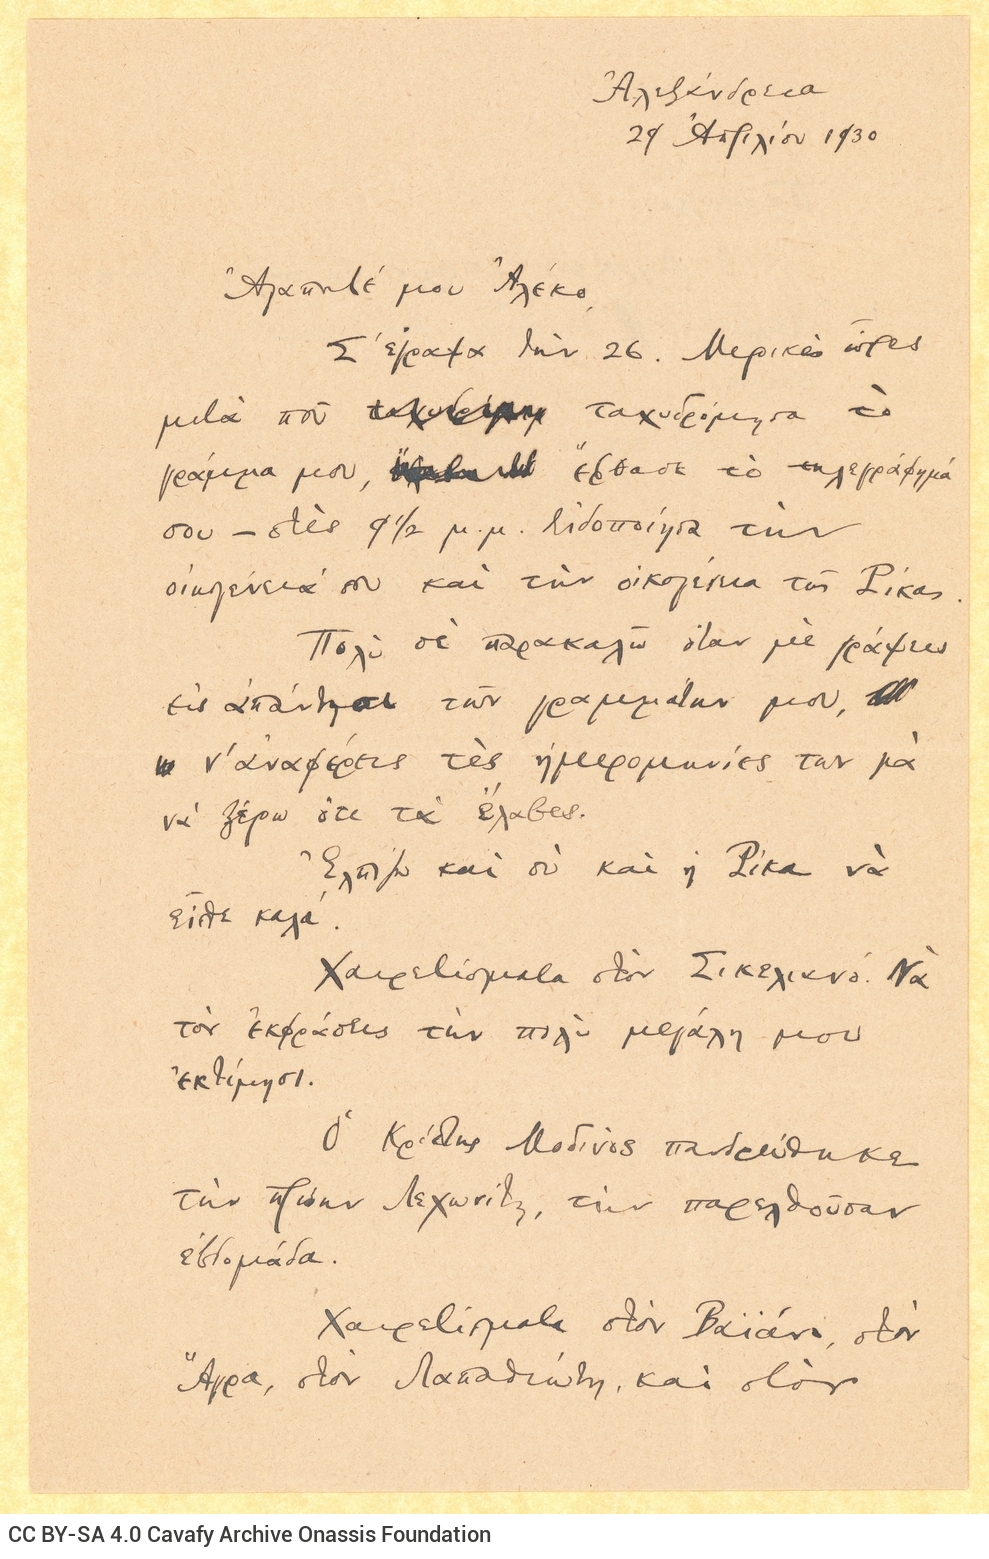 Ἀλεξάνδρεια
29 Ἀπριλίου 1930
Ἀγαπητέ μου Ἀλέκο,
Σ' ἔγραψα τὴν 26. Μερικὲς ὧρες
μετὰ ποῦ ταχυδρόμησα τὸ
γράμμα μου, ἔφθασε τὸ τηλεγράφημά
σου — στὲς 9 1/2 μ.μ. Εἰδοποίησα τὴν
οἰκογένειά σου καὶ τὴν οἰκογένεια τῆς Ρίκας.
Πολὺ σὲ παρακαλῶ ὅταν μὲ γράφεις
εἰς ἀπάντησι τῶν γραμμάτων μου,
ν' ἀναφέρεις τὲς ἡμερομηνίες των γιὰ
νὰ ξέρω ὅτι τὰ ἔλαβες.
Ἐλπίζω καὶ σὺ καὶ ἡ Ρίκα νὰ
εἶσθε καλά.
Χαιρετίσματα στὸν Σικελιανό. Νὰ
τὸν ἐκφράσεις τὴν πολὺ μεγάλη μου
ἐκτίμησι.
Ὁ Κρίτης Μοδινὸς πανδρεύθηκε
τὴν πρώην Λεχωνίτη, τὴν παρελθοῦσαν
ἑβδομάδα.
Χαιρετίσματα στὸν Βαϊάνο, στὸν
Ἄγρα, στὸν Λαπαθιώτη, καὶ στὸν
CC BY-SA 4.0 Cavafy Archive Onassis Foundation